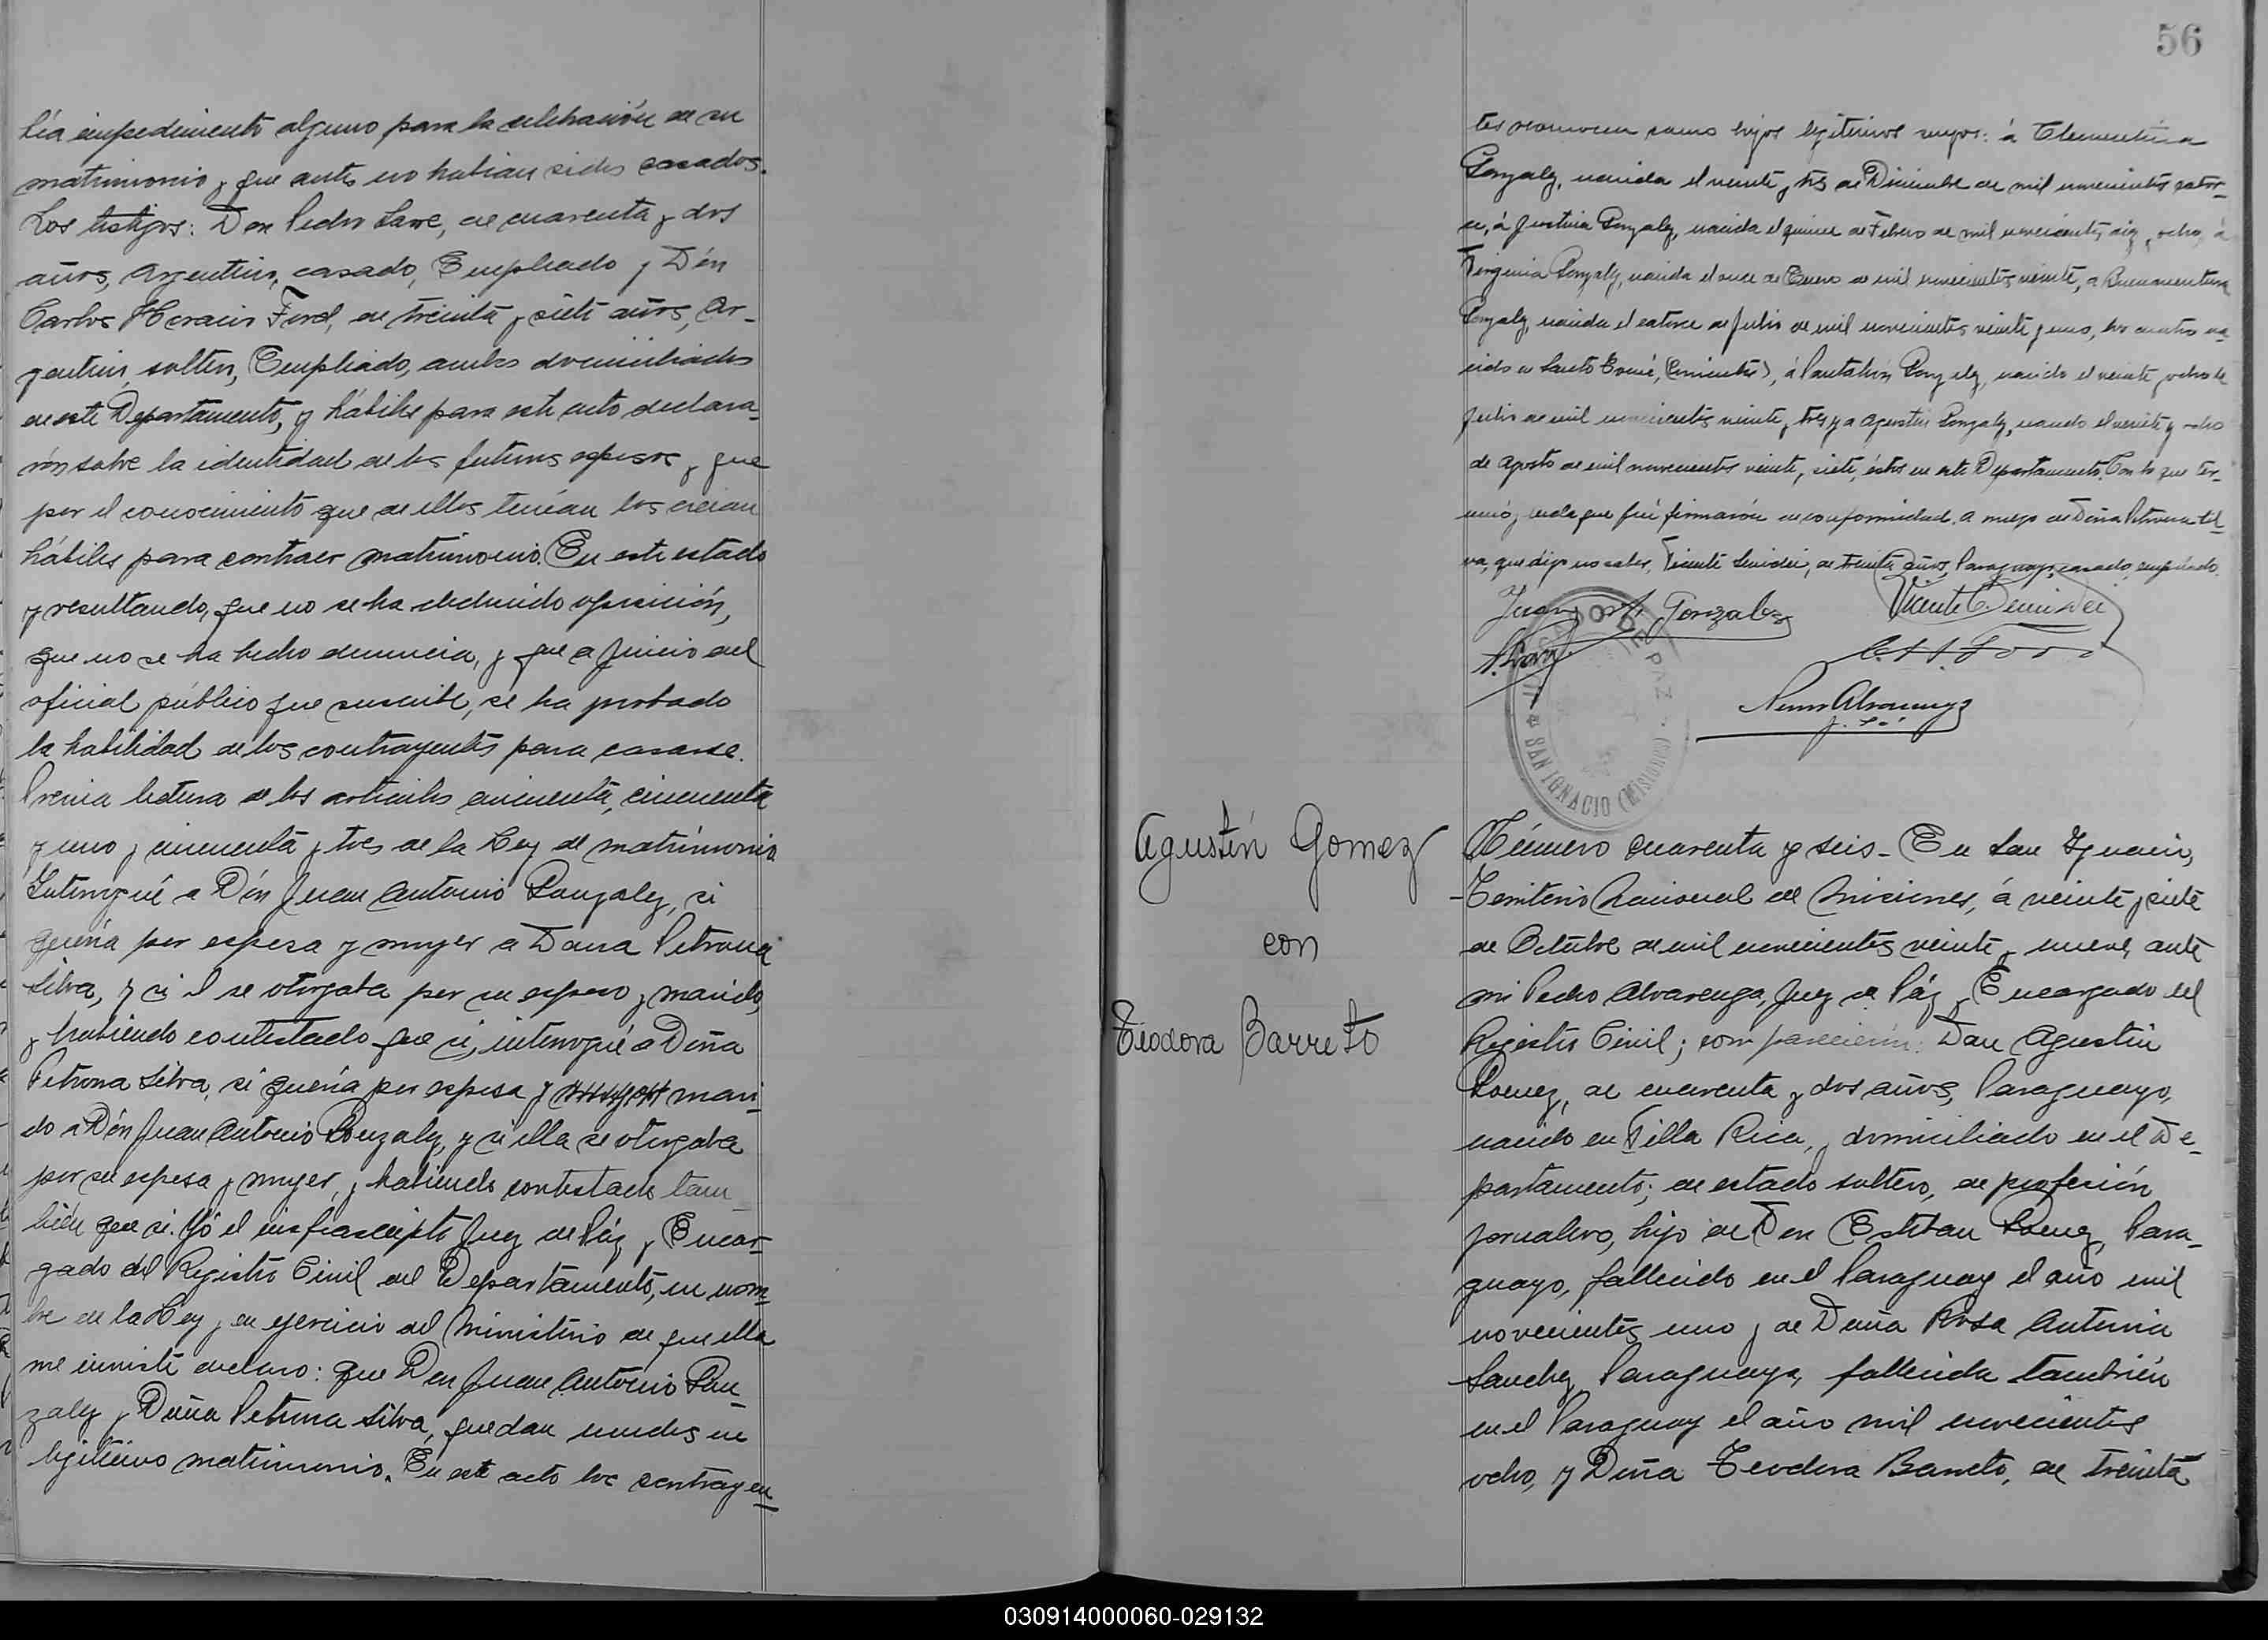 bía impedimento alguno para la celebración de su
matrimonio y que antes no habian sidos casados.
Los testigos: Don Pedro Sane, de cuarenta y dos
años, Argentino, casado, Empleado y Dón
Carlos Horacio Ford, de treinta y siete años, Ar-
gentino, soltero, Empleado, ambos domiciliados
en este Departamento, y hábiles para este acto declara-
ron sobre la identidad de los futuros esposos y que
por el conocimiento que de ellos tenían los creían
hábiles para contraer matrimonio. En este estado
y resultando, que no se ha deducido oposición,
que no se ha hecho denuncia, y que a juicio del
oficial público que suscribe, se ha probado
la habilidad de los contrayentes para casarse.
Previa lectura de los articulos cincuenta, cincuenta
y uno y cincuenta y tres de la Ley de matrimonio
Interrogué a Dón Juan Antonio Gonzalez, si
quería por esposa y mujer a Dona Petrona
Silva, y si el se otorgaba por su esposo y marido,
y habiendo contestado que si, interrogué a Doña
Petrona Silva, si quería por esposa y mari-
do a Dón Juan Antonio Gonzalez, y si ella se otorgaba
por su esposa y mujer, y habiendo contestado tam-
bién que si. Yó el infrascripto Juez de Páz y Encar-
gado del Registro Civil del Departamento, en nom-
bre de la Ley y en ejercicio del Ministerio de que ella
me inviste declaro: que Don Juan Antonio Gon-
zalez y Doña Petrona Silva, quedan unidos en
legitimo matrimonio. En este acto los contrayen-
56
tes reconocen como hijos legitimos suyos: á Clementina
Gonzalez, nacida el veinte y tres de Diciembre de mil novecientos cator-
ce, á Justina Gonzalez, nacida el quince de Febrero de mil novecientos diez y ocho, á
Virginia Gonzalez, nacida el once de Enero de mil novecientos veinte, a Buenaventura
Gonzalez, nacida el catorce de Julio de mil novecientos veinte y uno, los cuatro na-
cidos en Santo Tomé, (Corrientes), á Pantaleón Gonzalez, nacido el veinte y ocho de
Julio de mil novecientos veinte y tres y a Agustin Gonzalez, nacido el veinte y ocho
de Agosto de mil novecientos veinte y siete, éstos en este Departamento. Con lo que ter-
minó, leida que fué firmarón de conformidad. a ruego de Doña Petrona Sil-
va, que dijo no saber, Vicente de treinta años, Paraguayo, casado, empleado.
Juan A. Gonzales
Vicente
C. H. Ford
Alvarenga
DE PAZ
SAN IGNACIO (MISIONES)
Agustín Gomez
con
Teodora Barreto
Número cuarenta y seis - En San Ignacio,
Territorio Nacional de Misiones, á veinte y siete
de Octubre de mil novecientos veinte y nueve, ante
mi Pedro Alvarenga, Juez de Páz y Encargado del
Registro Civil; comparecieron: Don Agustin
Gomez, de cuarenta y dos años, Paraguayo,
nacido en Villa Rica, y domiciliado en el De-
partamento; de estado soltero, de profesión
jornalero, hijo de Don Esteban Gomez, Para-
guayo, fallecido en el Paraguay el año mil
novecientos uno y de Doña Rosa Antonia
Sanchez Paraguaya, fallecida también
en el Paraguay el año mil novecientos
ocho, y Doña Teodora Barreto, de treinta
030914000060-029132